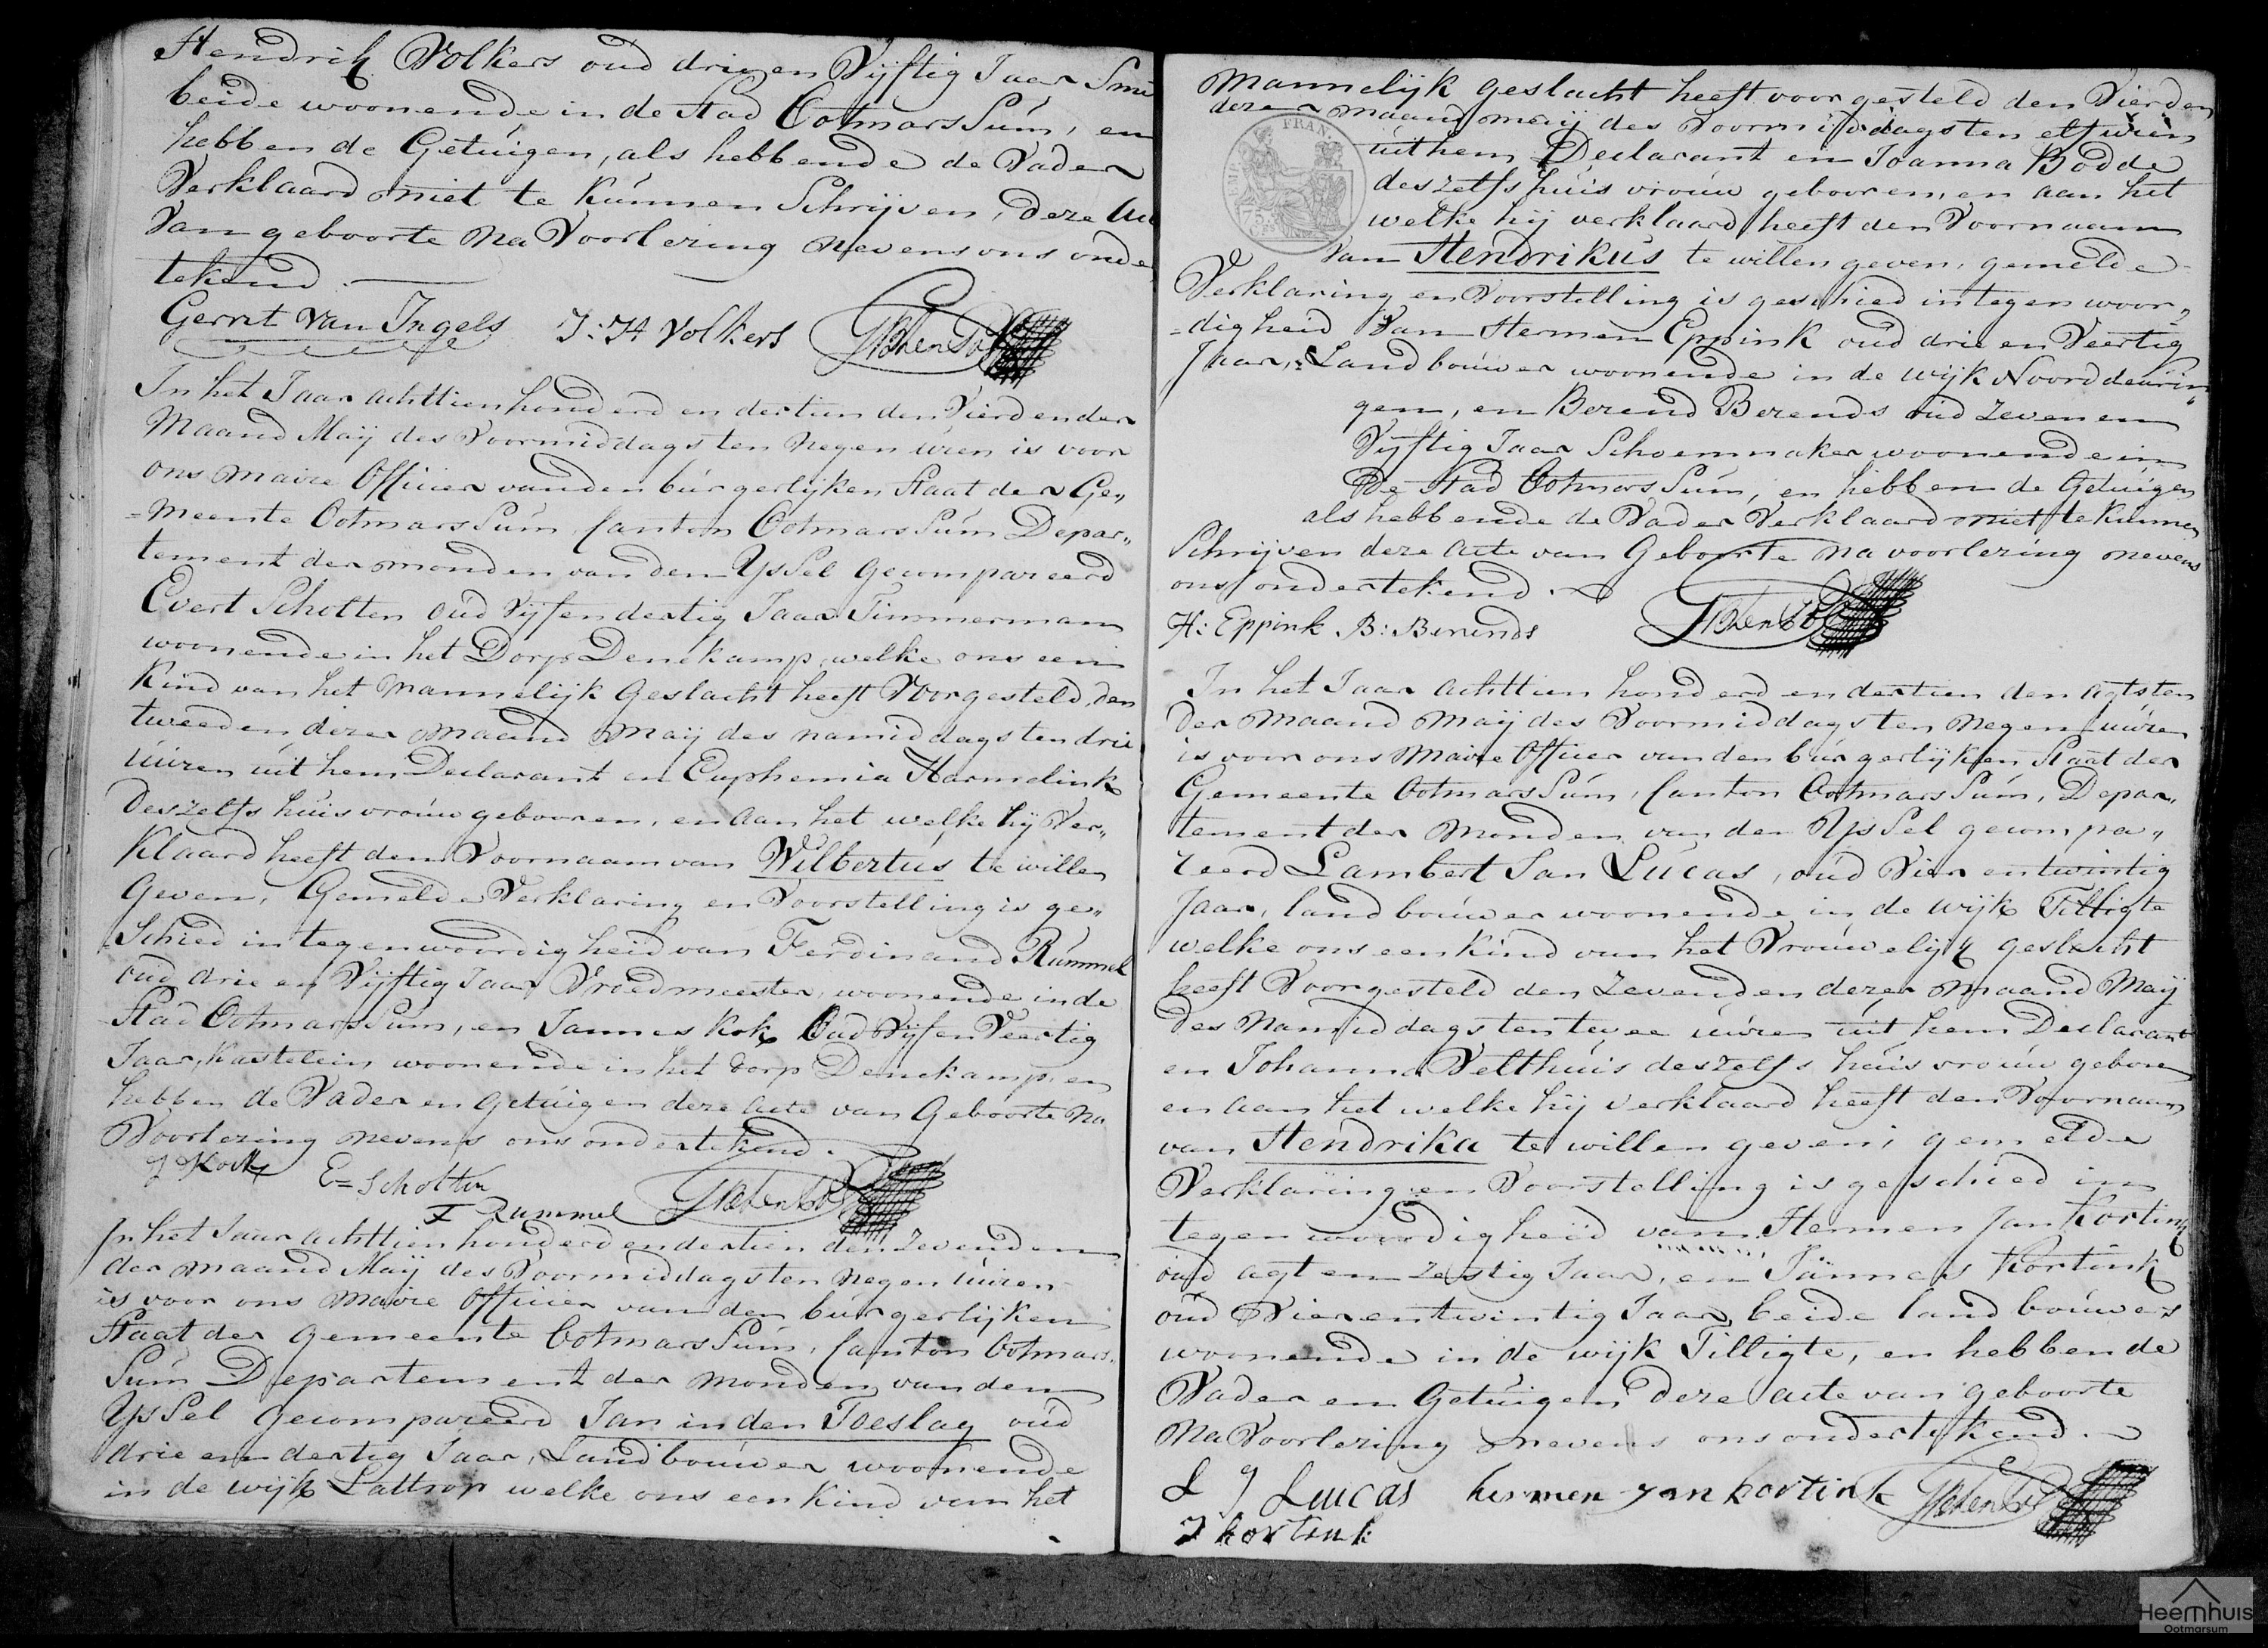 Hendrik Volkers oud drie en Vijftig Jaar Smi
beide woonende in de Stad OotmarsSum, en
hebben de Getuigen, als hebbende de Vader
Verklaard niet te Kunnen Schrijven, deze Act
Van geboorte Na Voorlezing nevens ons onde
tekend.
Gerrit Van Ingels J: H Volkers
In het Jaar achttien honderd en dertien den Vierden der
Maand Maij des Voormiddags ten Negen uren is voor
ons Maire Officier van den burgerlijken Staat der Ge„
=Meente OotmarsSum, Canton OotmarsSum Depar„
tement der monden van den YsSel Gecompareerd
Evert Scholten oud Vijf en dertig Jaar Timmerman
woonende in het Dorp Denekamp, welke ons een
Kind van het Mannelijk Geslacht heeft Voorgesteld, den
tweeden dezer Maand Maij des namiddags ten drie
uuren uit hem Declarant en Euphemia Harmelink
deszelfs huisvrouw gebooren, en aan het welke hij Ver„
Klaard heeft den Voornaam van Wilbertus te willen
Geven, Gemelde Verklaring en Voorstelling is ge„
Schied in tegenwoordigheid van Ferdinand Rummel
oud drie en Vijftig Jaar Vroedmeester, woonende in de
Stad OotmarsSum, en Jannes Kok Oud Vijf en Veertig
Jaar, Kastelein woonende in het dorp Denekamp, en
hebben de Vader en Getuigen deze acte van Geboorte Na
Voorlezing nevens ons ondertekend.
J Kock E= Scholten
F Rummel
In het Jaar achttien honderd en dertien den Zevenden
der Maand Maij des Voormiddags ten Negen uuren
is voor ons Maire Officier van den burgerlijken
Staat der Gemeente OotmarsSum, Canton Ootmars„
Sum Departement der Monden van den
YsSel Gecompareerd Jan in den Toeslag oud
drie en dertig Jaar, Landbouwer woonende
in de wijk Lattrop welke ons een Kind van het
Mannelijk geslacht heeft voorgesteld den Vierden
dezer maand maij des Voormiddags ten elf uren
uit hem Declarant en Joanna Bodde
deszelfs huis vrouw gebooren, en aan het
welke hij verklaard heeft den Voornaam
Van Hendrikus te willen geven, gemelde
Verklaring en Voorstelling is geschied in tegen woor„
=digheid Van Hermen Eppink oud drie en Veertig
Jaar, Landbouwer woonende in de wijk Noorddeurin„
gen, en Berend Berends oud Zeven en
Vijftig Jaar Schoenmaker woonende in
de Stad OotmarsSum, en hebben de Getuigen
als hebbende de Vader Verklaard niet te Kunnen
Schrijven deze acte van Geboorte na voorlezing nevens
ons ondertekend.
H: Eppink B: Berends
In het Jaar achttien honderd en dertien den agtsten
der Maand Maij des Voormiddags ten Negen uuren
is voor ons Maire Officier van den burgerlijken Staat der
Gemeente OotmarsSum, Canton OotmarsSum, Depar„
tement der Monden van den YsSel gecompa„
reerd Lambert Jan Lucas, oud Vier en twintig
Jaar, landbouwer woonende in de wijk Tilligte
welke ons een Kind van het Vrouwelijk geslacht
heeft Voorgesteld den Zevenden dezer Maand Maij
des Namiddags ten twee uuren uit hem Declarant
en Johanna Velthuis deszelfs huisvrouw geboren
en aan het welke hij verklaard heeft den Voornaam
van Hendrika te willen geven, gemelde
Verklaring en Voorstelling is geschied in
tegenwoordigheid van Hermen Jan Kortink
oud agt en Zestig Jaar, en Jannes Kortink
oud Vier en twintig Jaar, beide landbouwers
woonende in de wijk Tilligte, en hebben de
Vader en Getuigen deze acte van geboorte
Na Voorlezing nevens ons ondertekend.
L J Lucas hermen jan kortink
J kortink
EMP. FRAN.
75 CES
Heemhuis
Ootmarsum